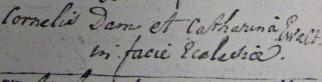 Cornelis Dam et Catharina Ewalt.
in facie Ecclesiæ.